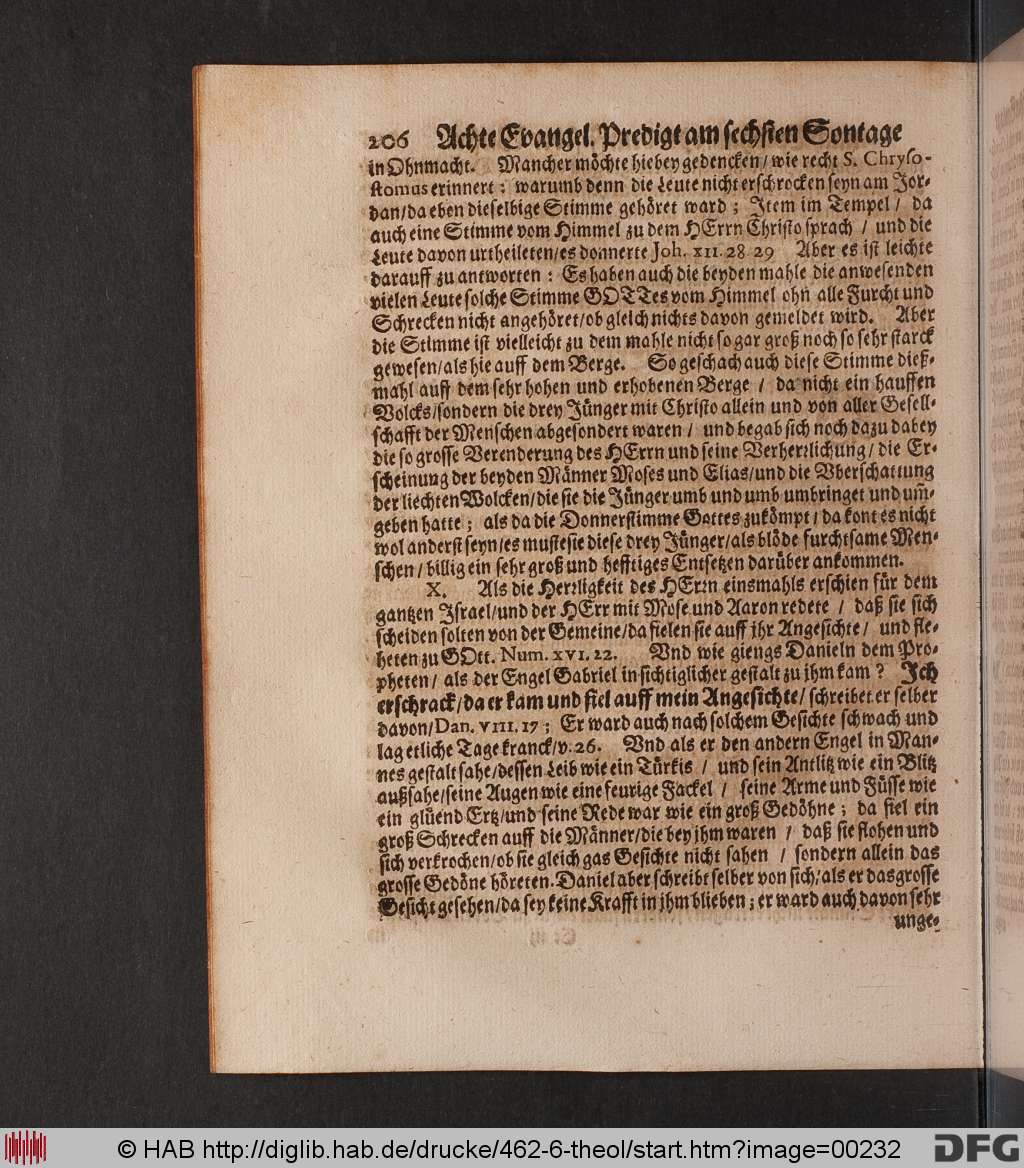 206 Achte Evangel. Predigt am sechsten Sontage
in Ohnmacht. Mancher möchte hiebey gedencken/ wie recht S. Chryso-
stomus erinnert: warumb denn die Leute nicht erschrocken seyn am Jor-
dan/da eben dieselbige Stimme gehöret ward; Item im Tempel/ da
auch eine Stimme vom Himmel zu dem HErrn Christo sprach / und die
Leute davon urtheileten/es donnerte Joh. XII. 28 29 Aber es ist leichte
darauff zu antworten: Es haben auch die beyden mahle die anwesenden
vielen Leute solche Stimme GOTTes vom Himmel ohn alle Furcht und
Schrecken nicht angehöret/ob gleich nichts davon gemeldet wird. Aber
die Stimme ist vielleicht zu dem mahle nicht so gar groß noch so sehr starck
gewesen/als hie auff dem Berge. So geschach auch diese Stimme dieß-
mahl auff dem sehr hohen und erhobenen Berge / da nicht ein hauffen
Volcks/sondern die drey Jünger mit Christo allein und von aller Gesell-
schafft der Menschen abgesondert waren/ und begab sich noch dazu dabey
die so grosse Verenderung des HErrn und seine Verherrlichung/ die Er-
scheinung der beyden Männer Moses und Elias/und die Vberschattung
der liechten Wolcken/die sie die Jünger umb und umb umbringet und um̃-
geben hatte; als da die Donnerstimme Gottes zukömpt/da kont es nicht
wol anderst seyn/es muste sie diese drey Jünger/als blöde furchtsame Men-
schen/ billig ein sehr groß und hefftiges Entsetzen darüber ankommen.
X. Als die Herrligkeit des HErrn einsmahls erschien für dem
gantzen Israel/und der HErr mit Mose und Aaron redete / daß sie sich
scheiden solten von der Gemeine/da fielen sie auff jhr Angesichte/ und fle-
heten zu GOtt. Num. XVI. 22. Vnd wie giengs Danieln dem Pro-
pheten/ als der Engel Gabriel in sichtiglicher gestalt zu jhm kam? Ich
erschrack/da er kam und fiel auff mein Angesichte/ schreibet er selber
davon/Dan. VIII. 17; Er ward auch nach solchem Gesichte schwach und
lag etliche Tage kranck/v. 26. Vnd als er den andern Engel in Man-
nes gestalt sahe/dessen Leib wie ein Türkis / und sein Antlitz wie ein Blitz
außsahe/seine Augen wie eine feurige Fackel / seine Arme und Füsse wie
ein glüend Ertz/und seine Rede war wie ein groß Gedöhne; da fiel ein
groß Schrecken auff die Männer/die bey jhm waren / daß sie flohen und
sich verkrochen/ob sie gleich gas Gesichte nicht sahen / sondern allein das
grosse Gedöne höreten. Daniel aber schreibt selber von sich/als er das grosse
Gesicht gesehen/da sey keine Krafft in jhm blieben; er ward auch davon sehr
unge-
© HAB http://diglib.hab.de/drucke/462-6-theol/start.htm?image=00232
DFG